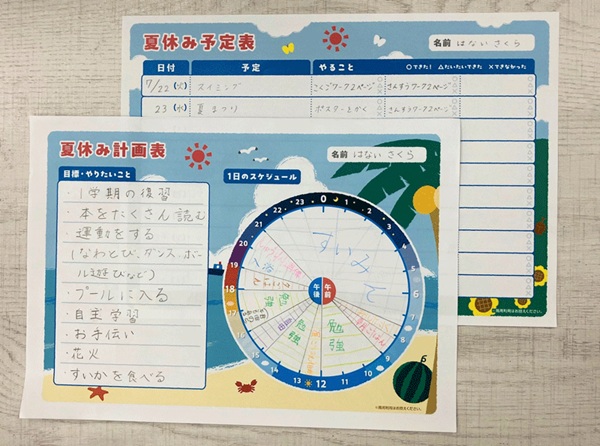 夏休み予定表
名前 はない さくら
日付 予定 やること ○できた! △だいたいできた ×できなかった
7/22 (火) スイミング こくごワーク2ページ さんすうワーク2ページ
23 (水) 夏まつり ポスターをかく さんすうワーク2ページ
夏休み計画表
名前 はない さくら
目標・やりたいこと
・1学期の復習
・本をたくさん読む
・運動をする
(なわとび、ダンス、ボー
ル遊びなど)
・プールに入る
・自主学習
・お手伝い
・花火
・すいかを食べる
1日のスケジュール
0 1 2 3 4 5 6 7 8 9 10 11 12 13 14 15 16 17 18 19 20 21 22 23
午後 午前
すいみん
勉強
勉強
勉強
自由
入浴